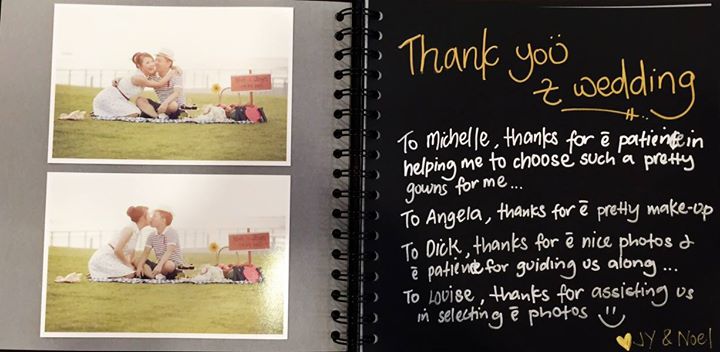 Thank you
Z wedding
To Michelle, thanks for ē patience in
helping me to choose such a pretty
gowns for me...
To Angela, thanks for ē pretty make-up
To Dick, thanks for ē nice photos &
ē patience for guiding us along...
To Louise, thanks for assisting us
in selecting ē photos
JY & Noel